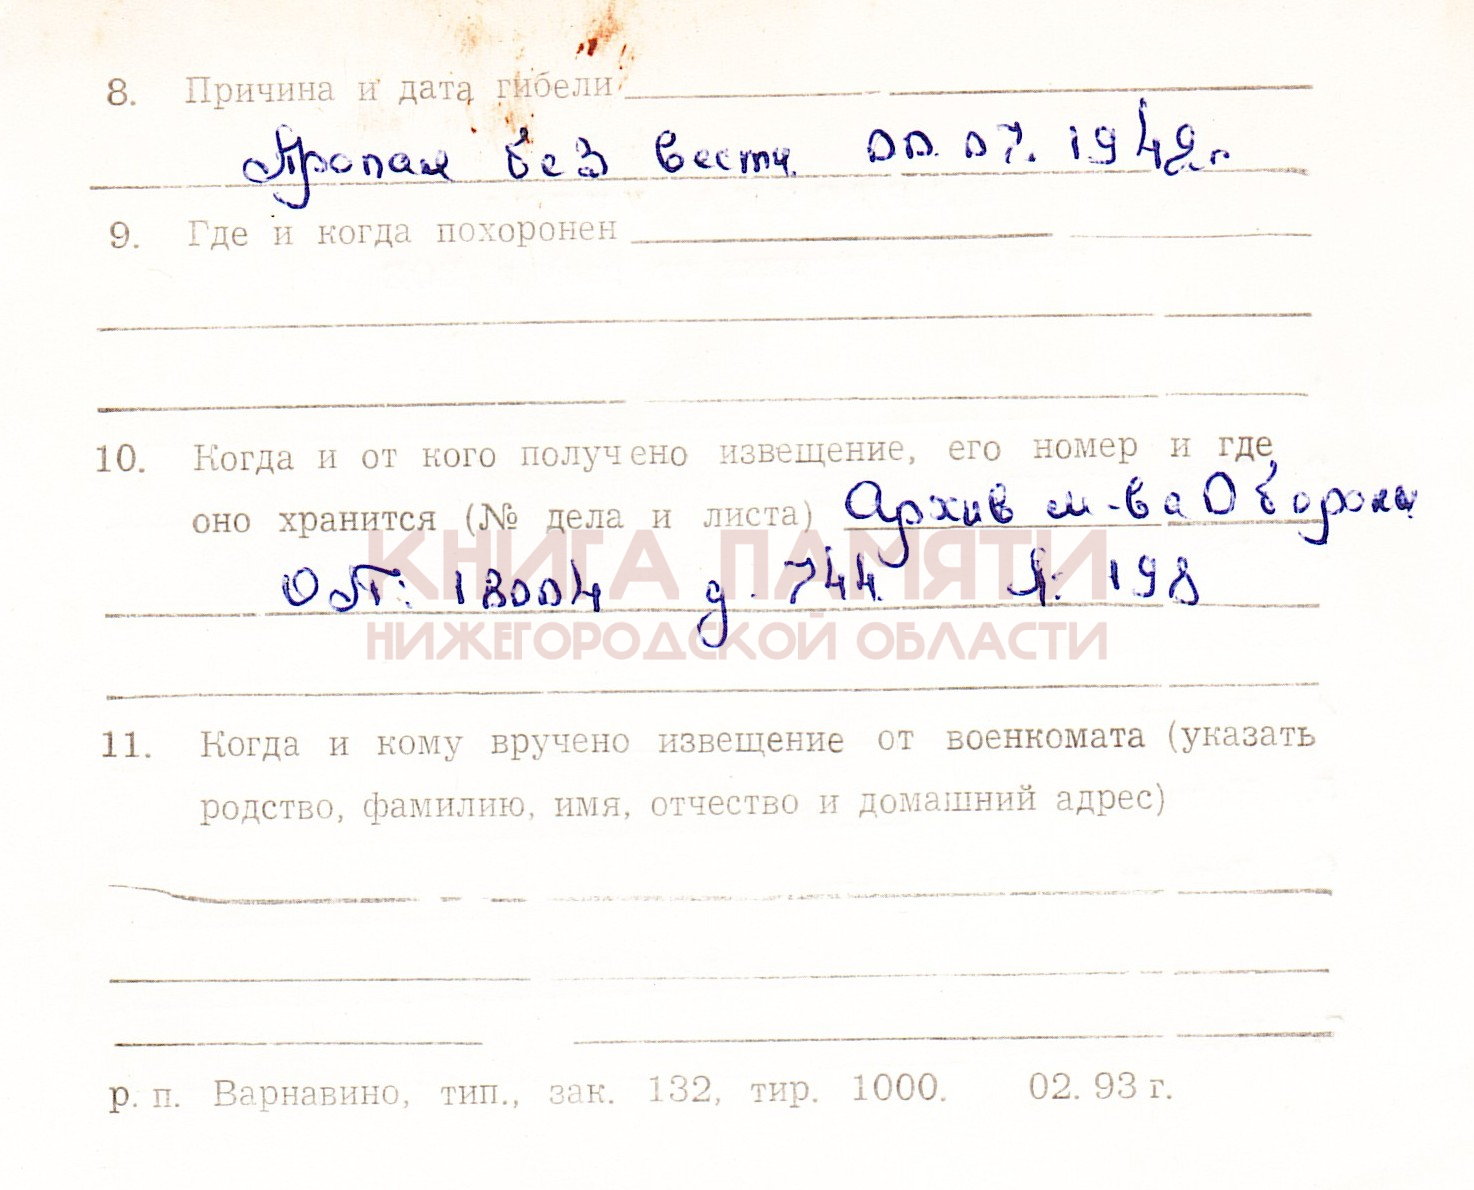 8. Причина и дата гибели
Пропал без вести 00.07.1942г.
9. Где и когда похоронен
10. Когда и от кого получено извещение, его номер и где
оно хранится (№ дела и листа) Архив м-ва Обороны
ОП: 18004 д. 744 Л: 198
КНИГА ПАМЯТИ
НИЖЕГОРОДСКОЙ ОБЛАСТИ
11. Когда и кому вручено извещение от военкомата (указать
родство, фамилию, имя, отчество и домашний адрес)
р. п. Варнавино, тип., зак. 132, тир. 1000. 02. 93 г.